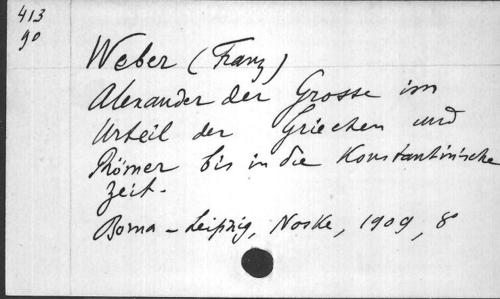 413
90
Weber (Franz)
Alexander der Grosse im
Urteil der Griechen und
Römer bis in die Konstantinische
Zeit.
Borna - Leipzig, Noske, 1909, 8°